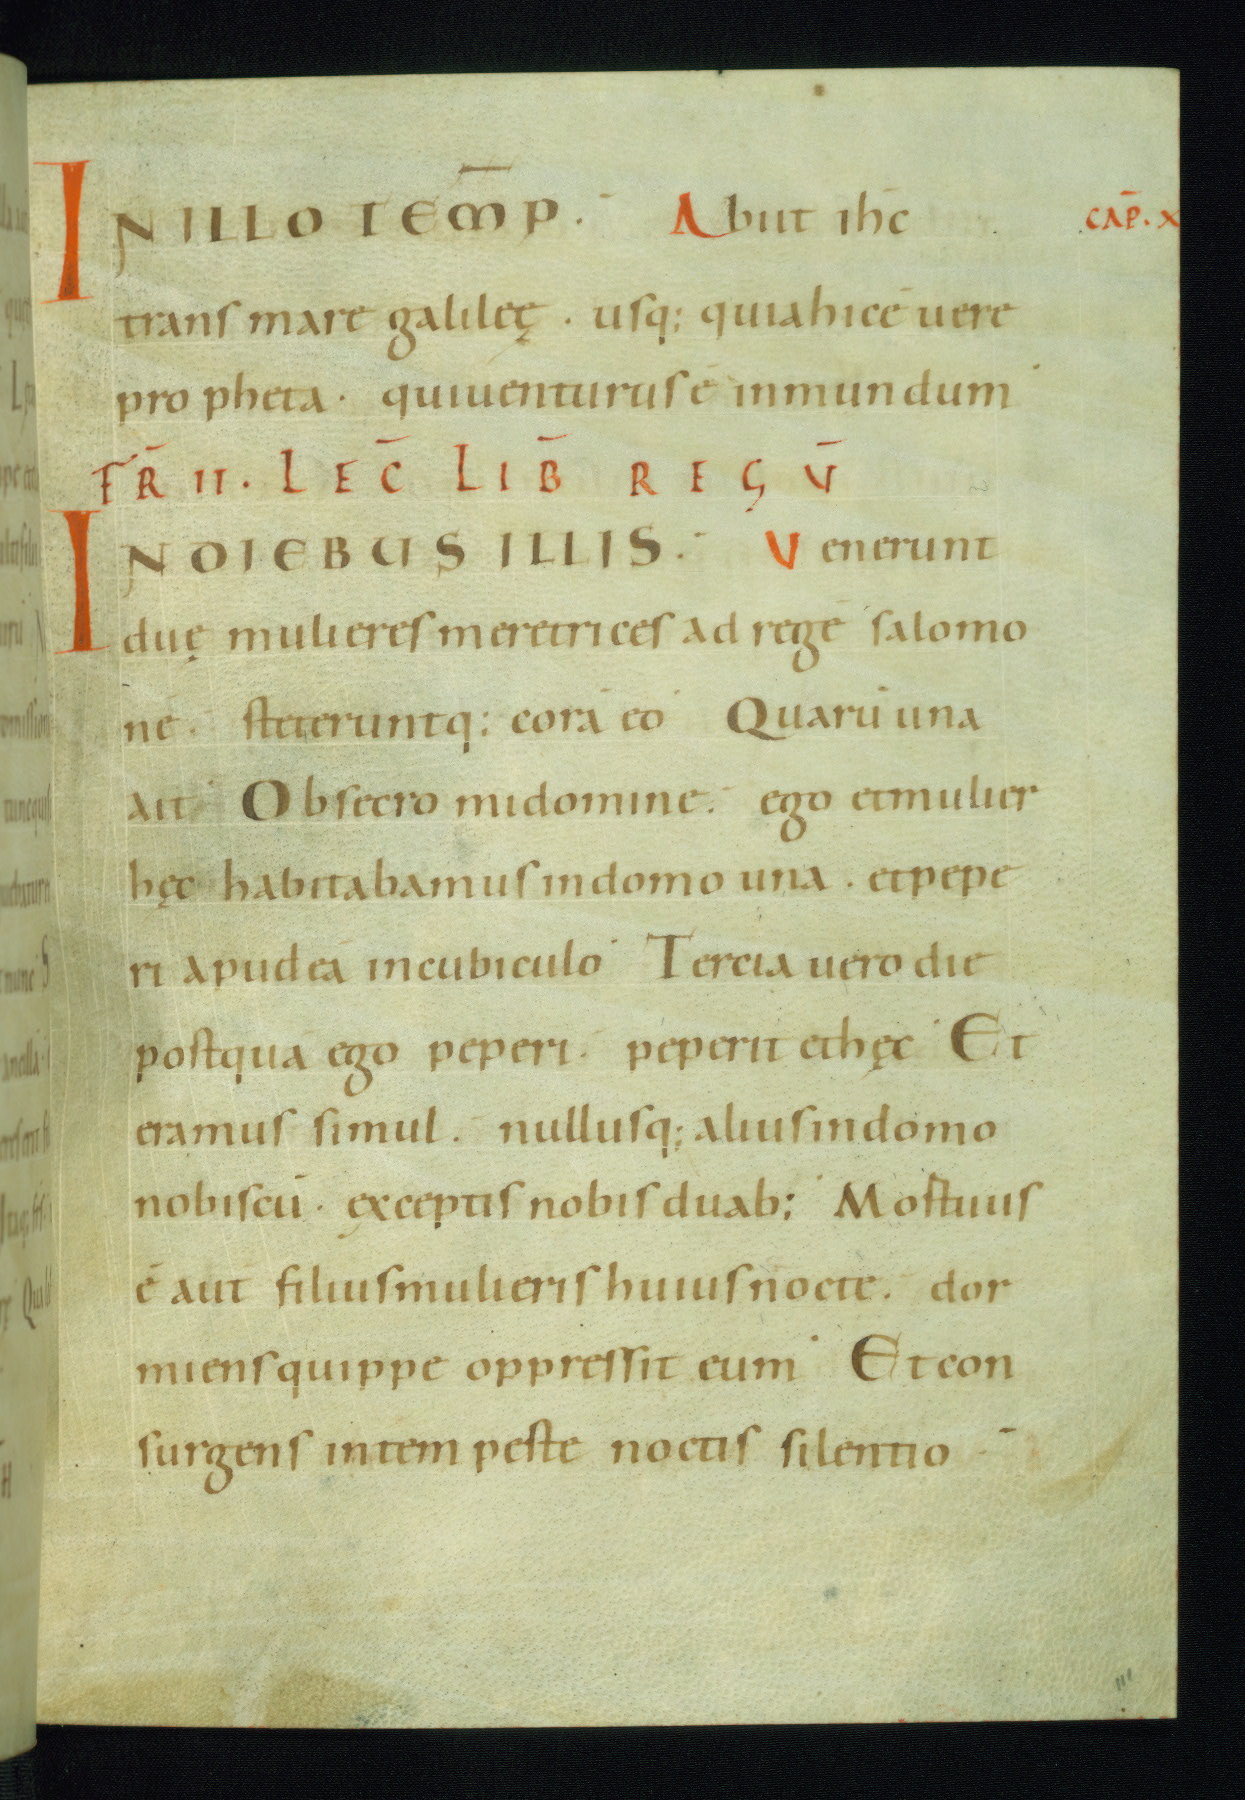 IN ILLO TEM̄P. Abiit ih̄c CAP̄. X
trans mare galileę . usq; quia hic ē uere
propheta . qui uenturus ē in mundum
FR̄ II . LEC̄ LIB̄ REGŪ
IN DIEBUS ILLIS . Venerunt
duę mulieres meretrices ad regē salomo
nē . steteruntq; corā eo Quarū una
ait Obsecro mi domine . ego et mulier
hęc habitabamus in domo una . et pepe
ri apud eā in cubiculo Tercia uero die
postquā ego peperi . peperit et hęc Et
eramus simul . nullusq; alius in domo
nobiscū . exceptis nobis duab; Mortuus
ē aut̄ filius mulieris huius nocte . dor
miens quippe oppressit eum Et con
surgens intempeste noctis silentio